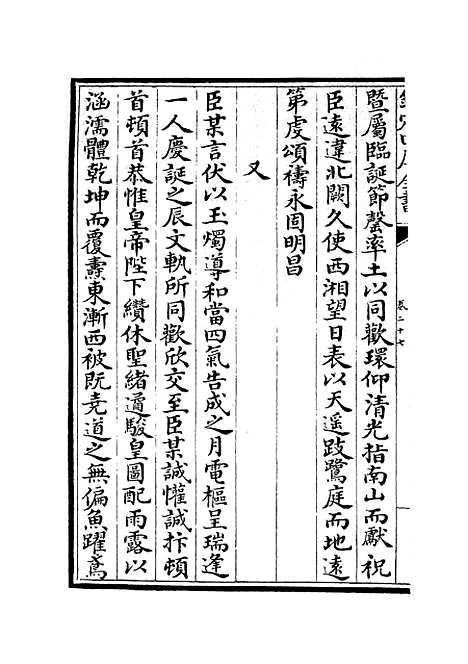 暨屬臨誕節罄率土以同歡環仰清光指南山而獻祝
臣遠違北闕久使西湘望日表以天遥跂鷺庭而地遠
第虔頌禱永固明昌
又
臣某言伏以玉燭導和當四氣告成之月電樞呈瑞逢
一人慶誕之辰文軌所同歡欣交至臣某誠懽誠忭頓
首頓首恭惟皇帝陛下纘休聖緒遹駿皇圖配雨露以
涵濡體乾坤而覆燾東漸西被既堯道之無偏魚躍鳶